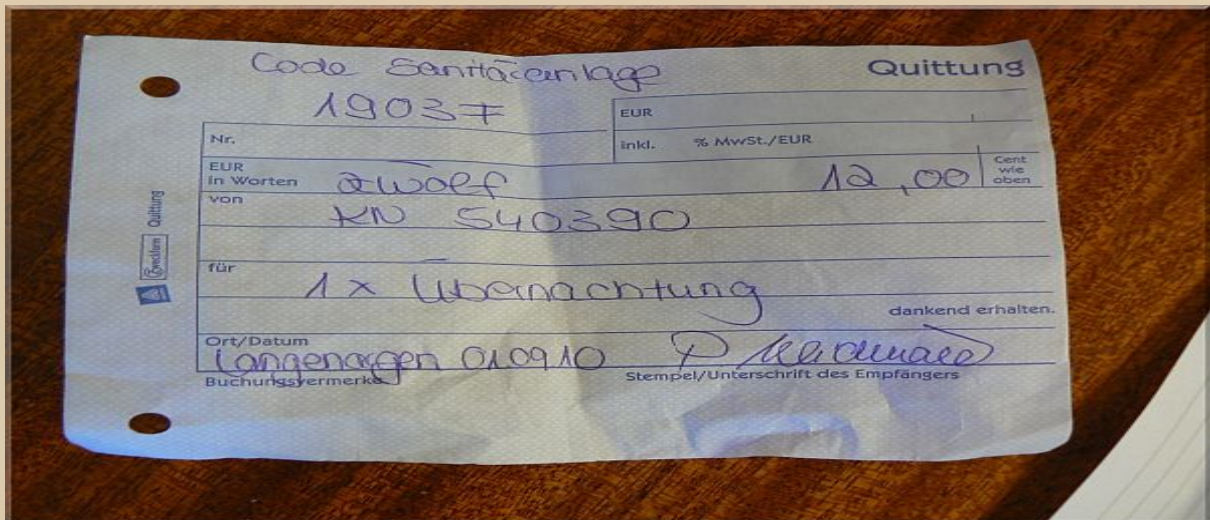 Code Sanitäranlage
Quittung
19037
EUR
Nr.
inkl. % MwSt./EUR
EUR
in Worten zwölf 12,00 Cent wie oben
von KN 540390
für 1x Übernachtung
dankend erhalten.
Ort/Datum
Langenargen 010910
Buchungsvermerke
Stempel/Unterschrift des Empfängers
Zweckform Quittung